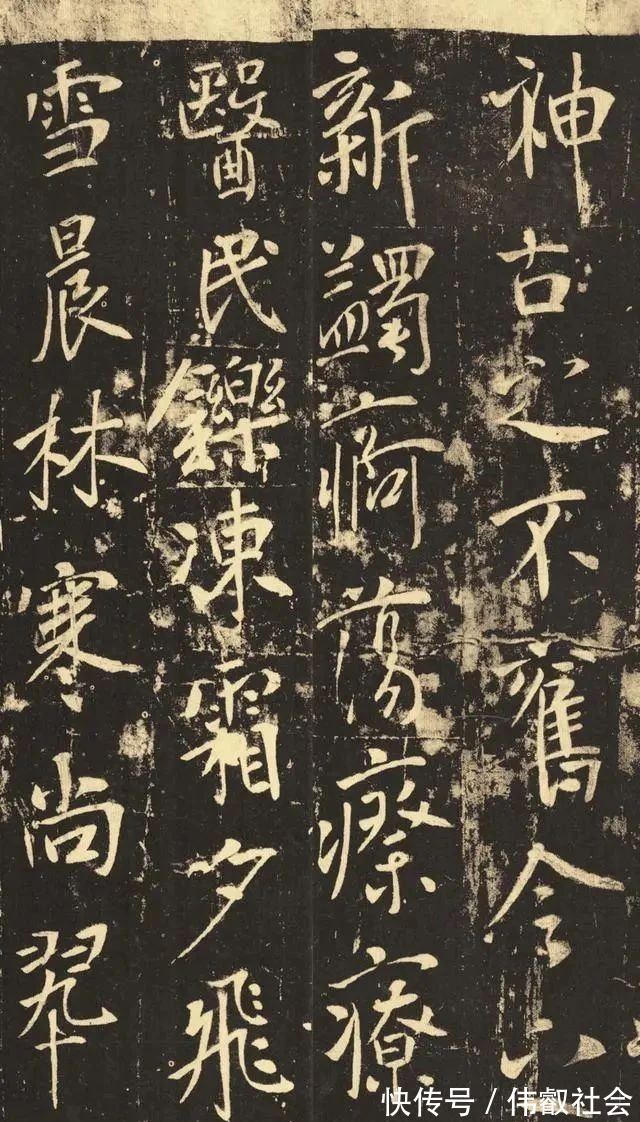 神古之不舊今
新蠲痾蕩瘵療
醫民鑠凍霜夕飛
雪晨林寒尚翠
快传号 / 伟叡社会